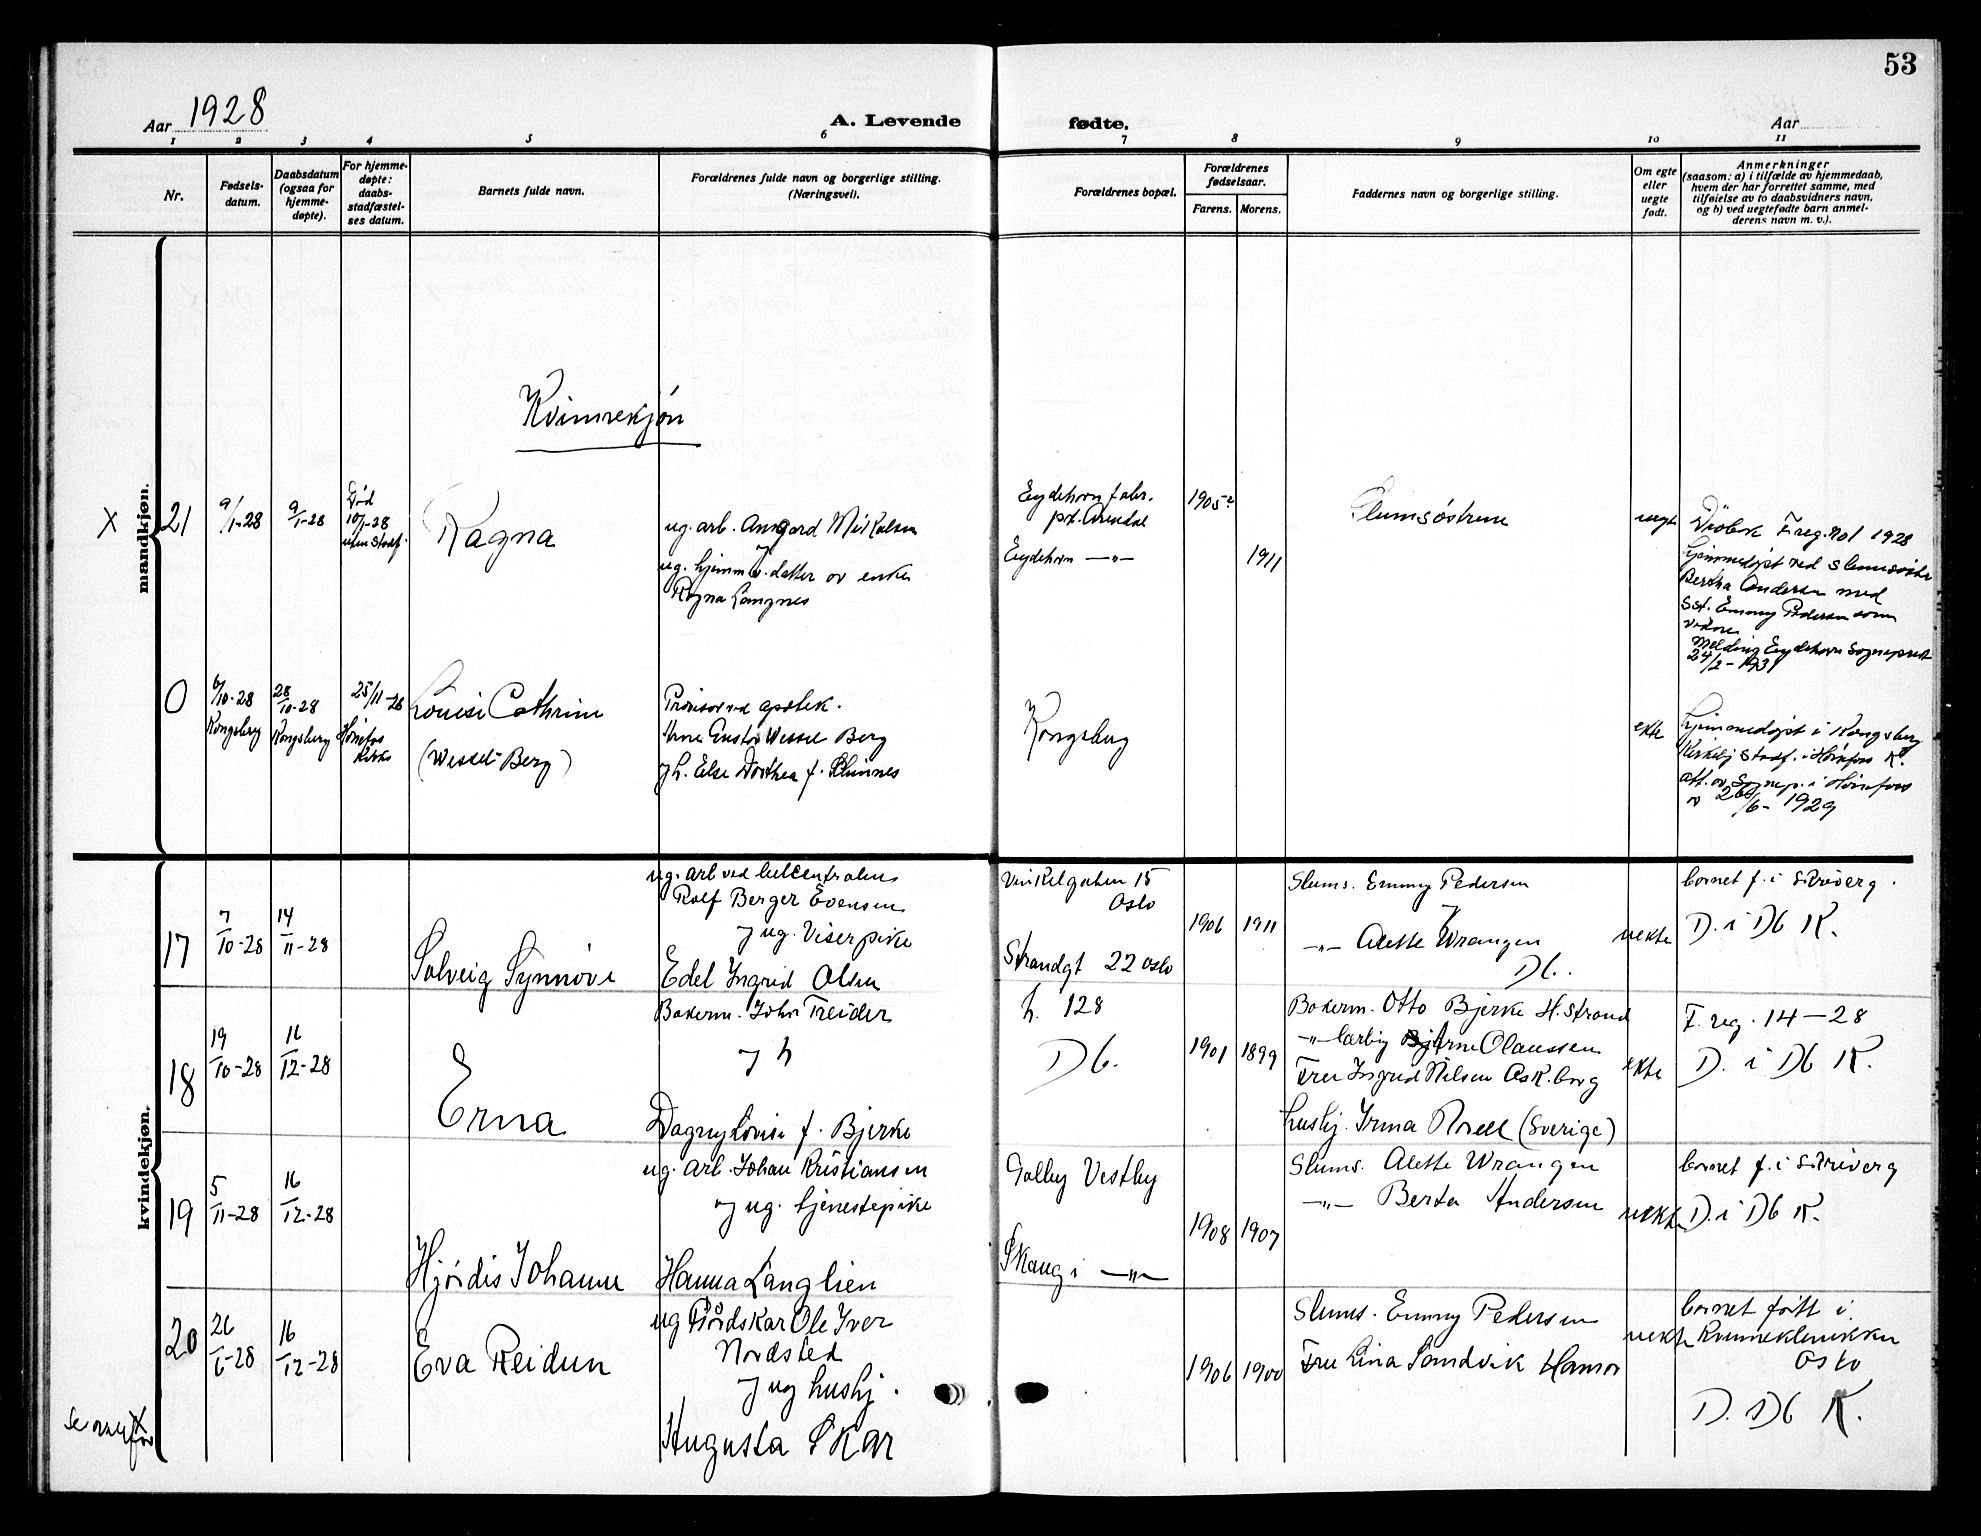 53
Aar 1928
A. Levende fødte.
Aar
1 2 3 4 5 6 7 8 9 10 11
Nr.
Fødsels-
datum.
Daabsdatum
(ogsaa for
hjemme-
døpte).
For hjemme-
døpte:
daabs-
stadfæstel-
ses datum.
Barnets fulde navn.
Forældrenes fulde navn og borgerlige stilling.
(Næringsvei).
Forældrenes bopæl.
Forældrenes
fødselsaar.
Farens. Morens.
Faddernes navn og borgerlige stilling.
Om egte
eller
uegte
født.
Anmerkninger
(saasom: a) i tilfælde av hjemmedaab,
hvem der har forrettet samme, med
tilføielse av to daabsvidners navn,
og b) ved uegtefødte barn anmel-
derens navn m. v.).
mandkjøn.
Kvinnekjøn
X 21
9/1-28
9/1-28
Død
10/1-28
uten stadf.
Ragna
ug. arb. Mikalsen
og
ug. hjemmev. datter av enke
Ragna Langnes
Eydehavn fabr.
pr. Arendal
Eydehavn -"-
1905?
1911
Slumsøstrene
uegte
Drøbak F.reg. no 1 1928
hjemmedøpt ved slumsøster
Bertha Andersen med
Sst. Emmy Pedersen som
Melding Eydehavn Sogneprest
24/2-1931
0
6/10-28
Kongsberg
28/10-28
Kongsberg
25/11-28
Hønefos
Kirke
Louise Cathrine
(Wessel-Berg)
Provisor ved apotek.
Arne Gustav Wessel Berg
og h. Else Dorthea f.
Kongsberg
ekte
hjemmedøpt i Kongsberg
Kirke stadf. i Hønefoss K.
att. av Sognep. i Hønefoss
av 26/6-1929
kvindekjøn.
17
7/10-28
14/11-28
Solveig Synnøve
ug. arb ved
Rolf Berger Evensen
og ug. Viserpike
Edel Ingrid Olsen
Vinkelgaten 15
Oslo
Strandgt 22 Oslo
1906 1911
Slums. Emmy Pedersen
og
-"- Alette Wrangen
Db.
uekte
barnet f. i Skiverg.
D. i Db K.
18
19/10-28
16/12-28
Erna
Bakerm. Johs Treider
og h
Dagny Lovise f. Bjerke
h. 128
Db.
1901 1899
Bakerm. Otto Bjerke H. Strand
-"- Arne Olaussen
Fru Ingrid Nilsen Ask. borg
hushj. Irma (Sverige)
ekte
F. reg. 14-28
D. i Db K.
19
5/11-28
16/12-28
Hjørdis Johanne
ug. arb. Johan Kristiansen
og ug. tjenestepike
Hanna Langlien
Galby Vestby
Skaug i -"-
1908 1907
Slums. Alette Wrangen
-"- Berta Andersen
uekte
barnet f. i Skiverg
D. i Db K.
20
26/6-28
16/12-28
Eva Reidun
ug Gårdskar Ole Iver
Nordsted
og ug hushj.
Augusta Skar
1906 1900
Slums. Emmy Pedersen
Fru Lina Sandvik
uekte
barnet født i
Kvinneklinikken
Oslo
D. Db K.